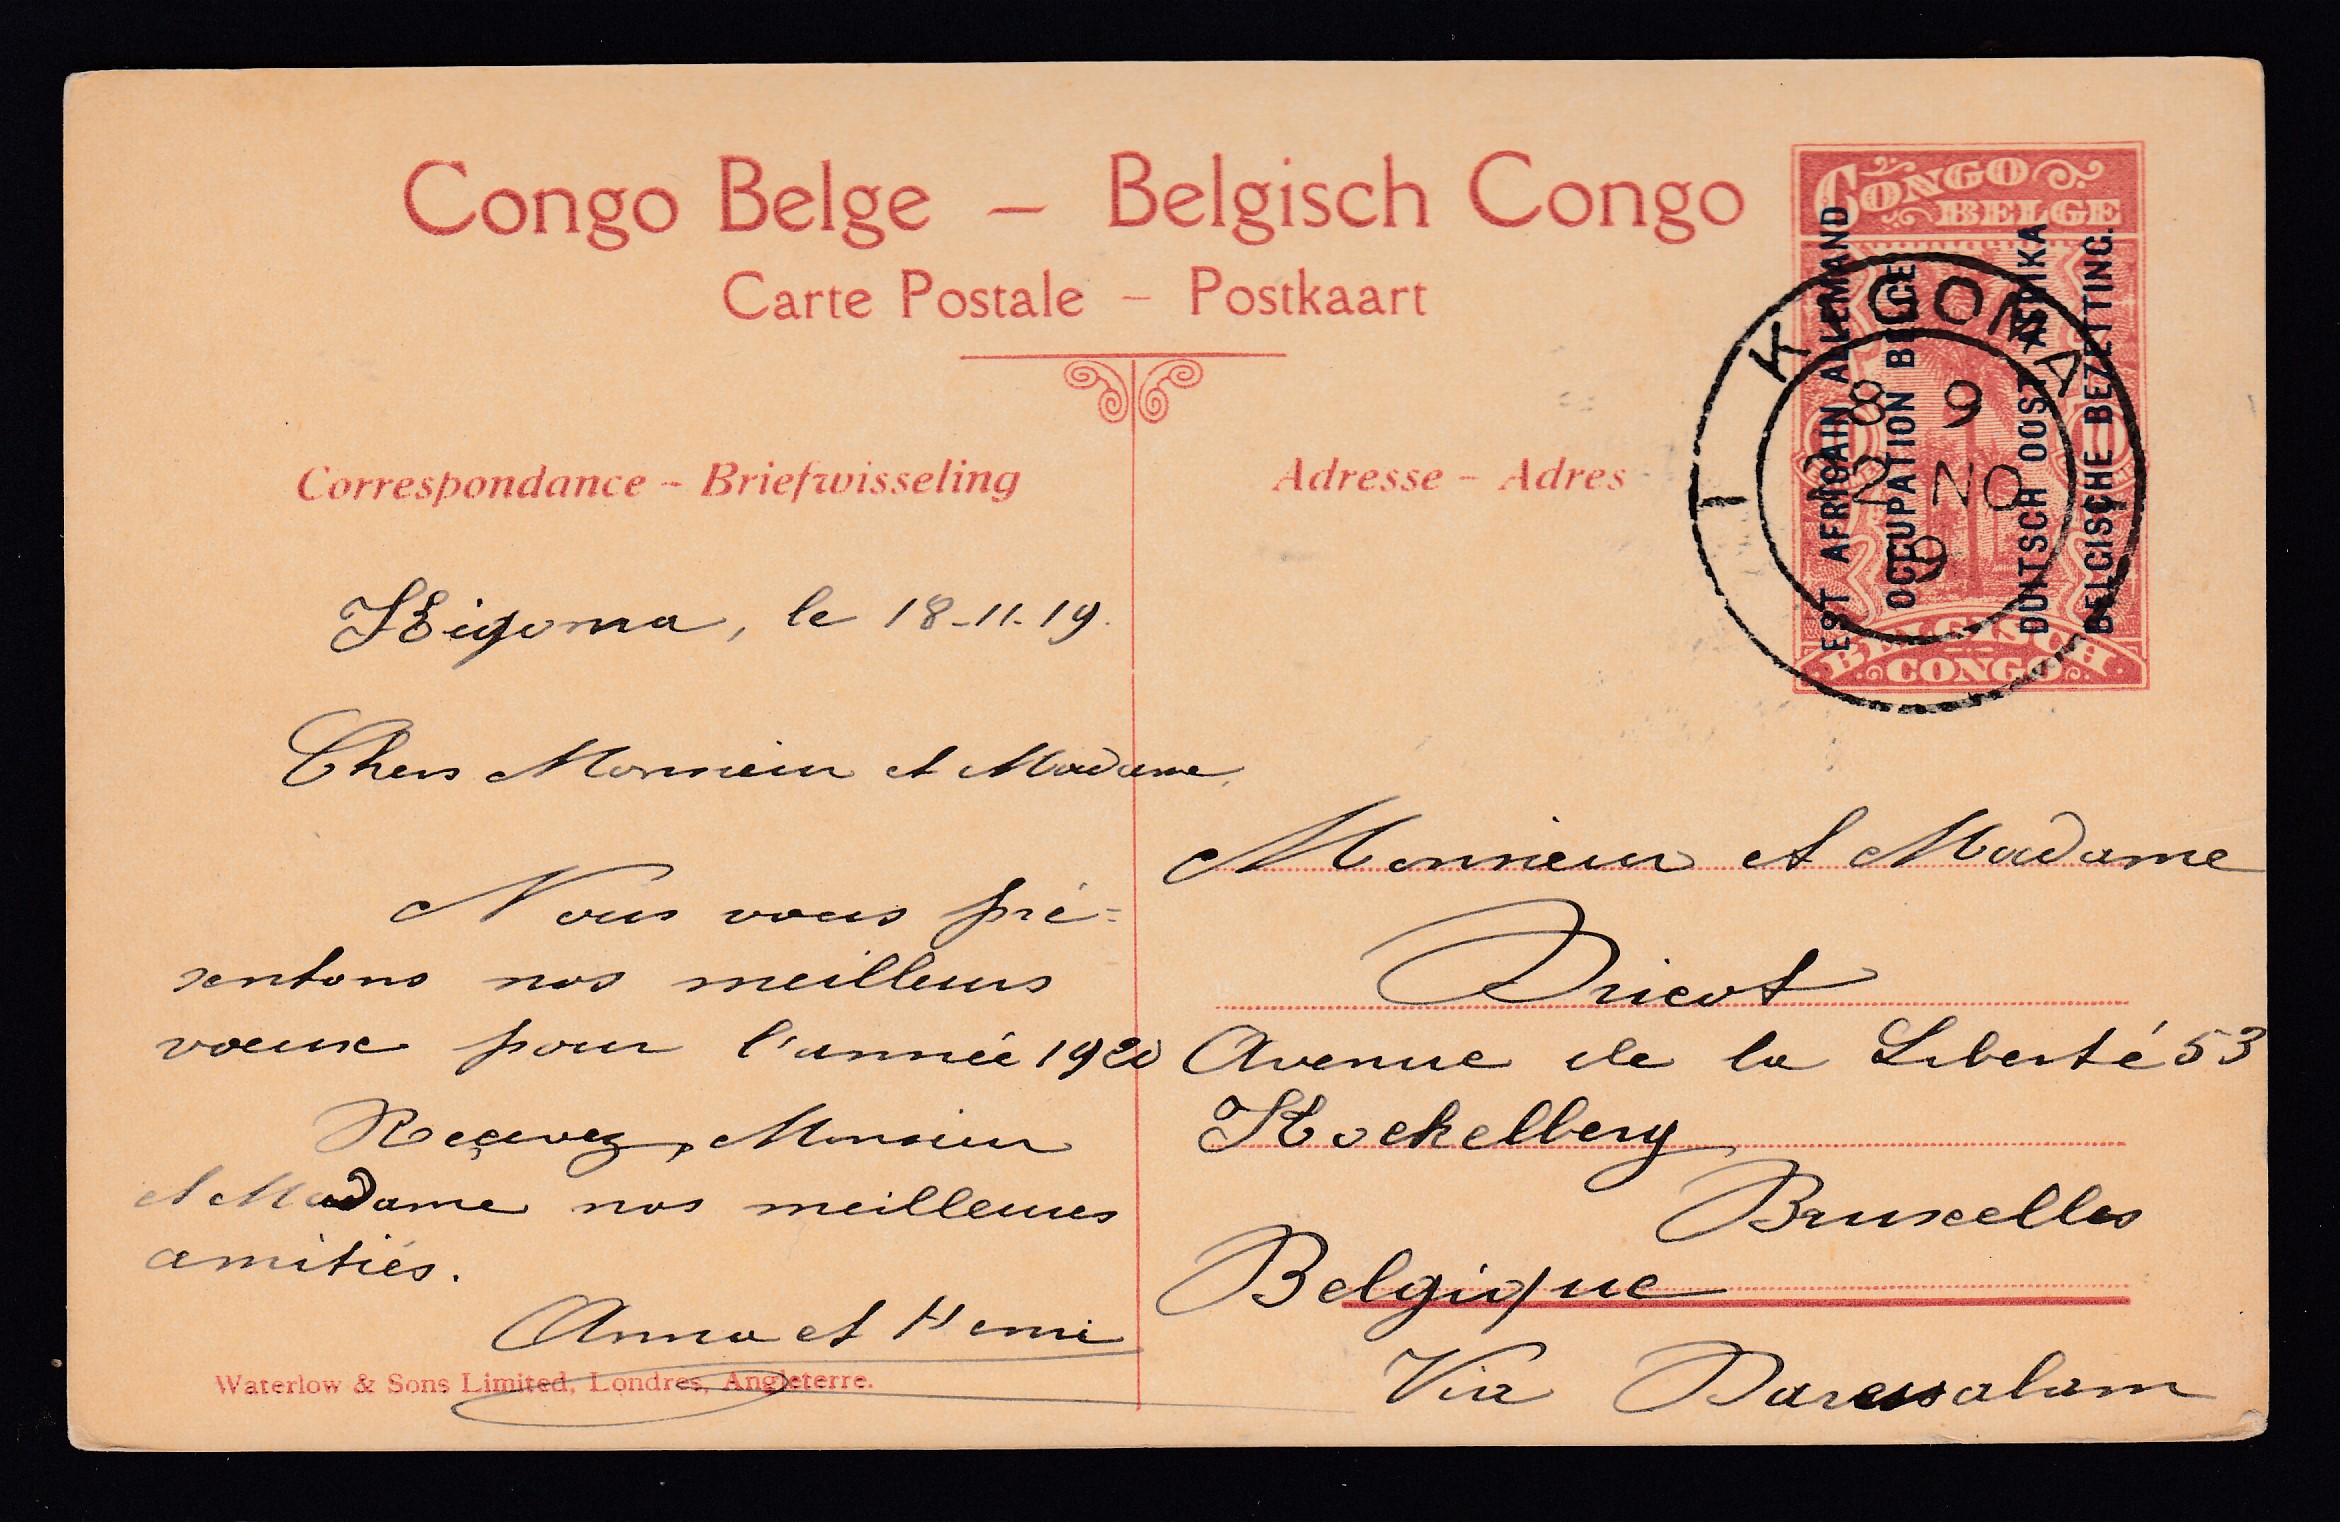 Congo Belge – Belgisch Congo
Carte Postale – Postkaart
Correspondance – Briefwisseling
Adresse – Adres
CONGO
BELGE
EST AFRICAIN ALLEMAND
OCCUPATION BELGE
DUITSCH OOST AFRIKA
BELGISCHE BEZETTING.
BELGISCH
CONGO
KIGOMA
8 9
2 NO
9
Kigoma, le 18-11-19.
Chers Monsieur et Madame,
Nous vous pré=
sentons nos meilleurs
voeux pour l'année 1920
Reçevez, Monsieur
et Madame nos meilleures
amitiés.
Anna et Henri
Waterlow & Sons Limited, Londres, Angleterre.
Monsieur et Madame
Dricot
Avenue de la Liberté 53
Koekelberg
Bruxelles
Belgique
Via Daressalam